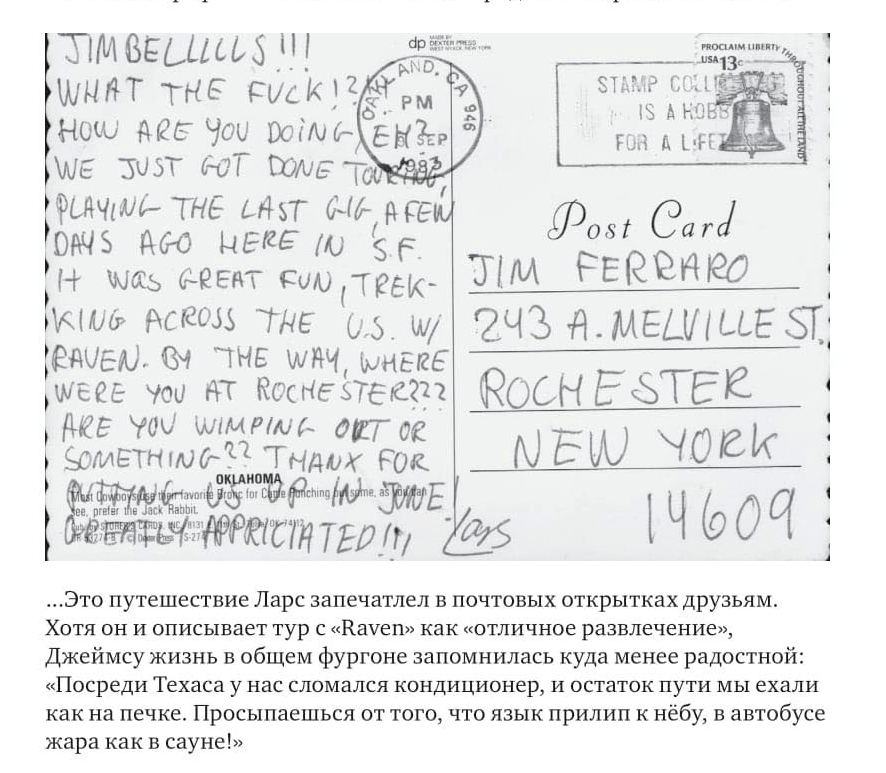 JIMBELLLLLS!!!
WHAT THE FUCK!?
HOW ARE YOU DOING, EH?
WE JUST GOT DONE TOURING,
PLAYING THE LAST GIG, A FEW
DAYS AGO HERE IN S.F.
It WAS GREAT FUN, TREK-
KING ACROSS THE U.S. W/
RAVEN. BY THE WAY, WHERE
WERE YOU AT ROCHESTER???
ARE YOU WIMPING OUT OR
SOMETHING?? THANX FOR
PUTTING US UP IN JUNE!
GREATLY APPRICIATED!!!, Lars
OKLAHOMA
Most Cowboys use their favorite Bronc for Cattle Punching but some, as you can
see, prefer the Jack Rabbit.
dp MADE BY
DEXTER PRESS
WEST NYACK, NEW YORK
OAKLAND, CA 946
PM
SEP
1983
STAMP COLL
IS A HOBB
FOR A LIFET
PROCLAIM LIBERTY THROUGHOUT ALL THE LAND
USA 13c
Post Card
JIM FERRARO
243 A. MELVILLE ST.
ROCHESTER
NEW YORK
14609
...Это путешествие Ларс запечатлел в почтовых открытках друзьям.
Хотя он и описывает тур с «Raven» как «отличное развлечение»,
Джеймсу жизнь в общем фургоне запомнилась куда менее радостной:
«Посреди Техаса у нас сломался кондиционер, и остаток пути мы ехали
как на печке. Просыпаешься от того, что язык прилип к нёбу, в автобусе
жара как в сауне!»